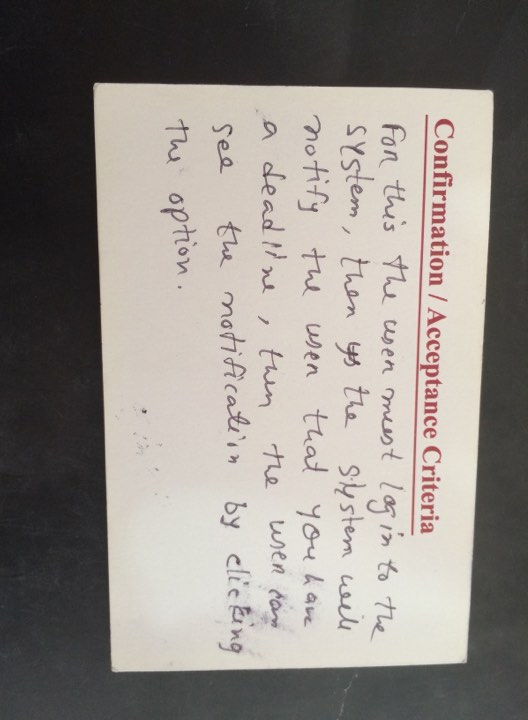 Confirmation / Acceptance Criteria
For this the user must log in to the
system, then the system will
notify the user that you have
a deadline, then the user can
see the notification by clicking
the option.